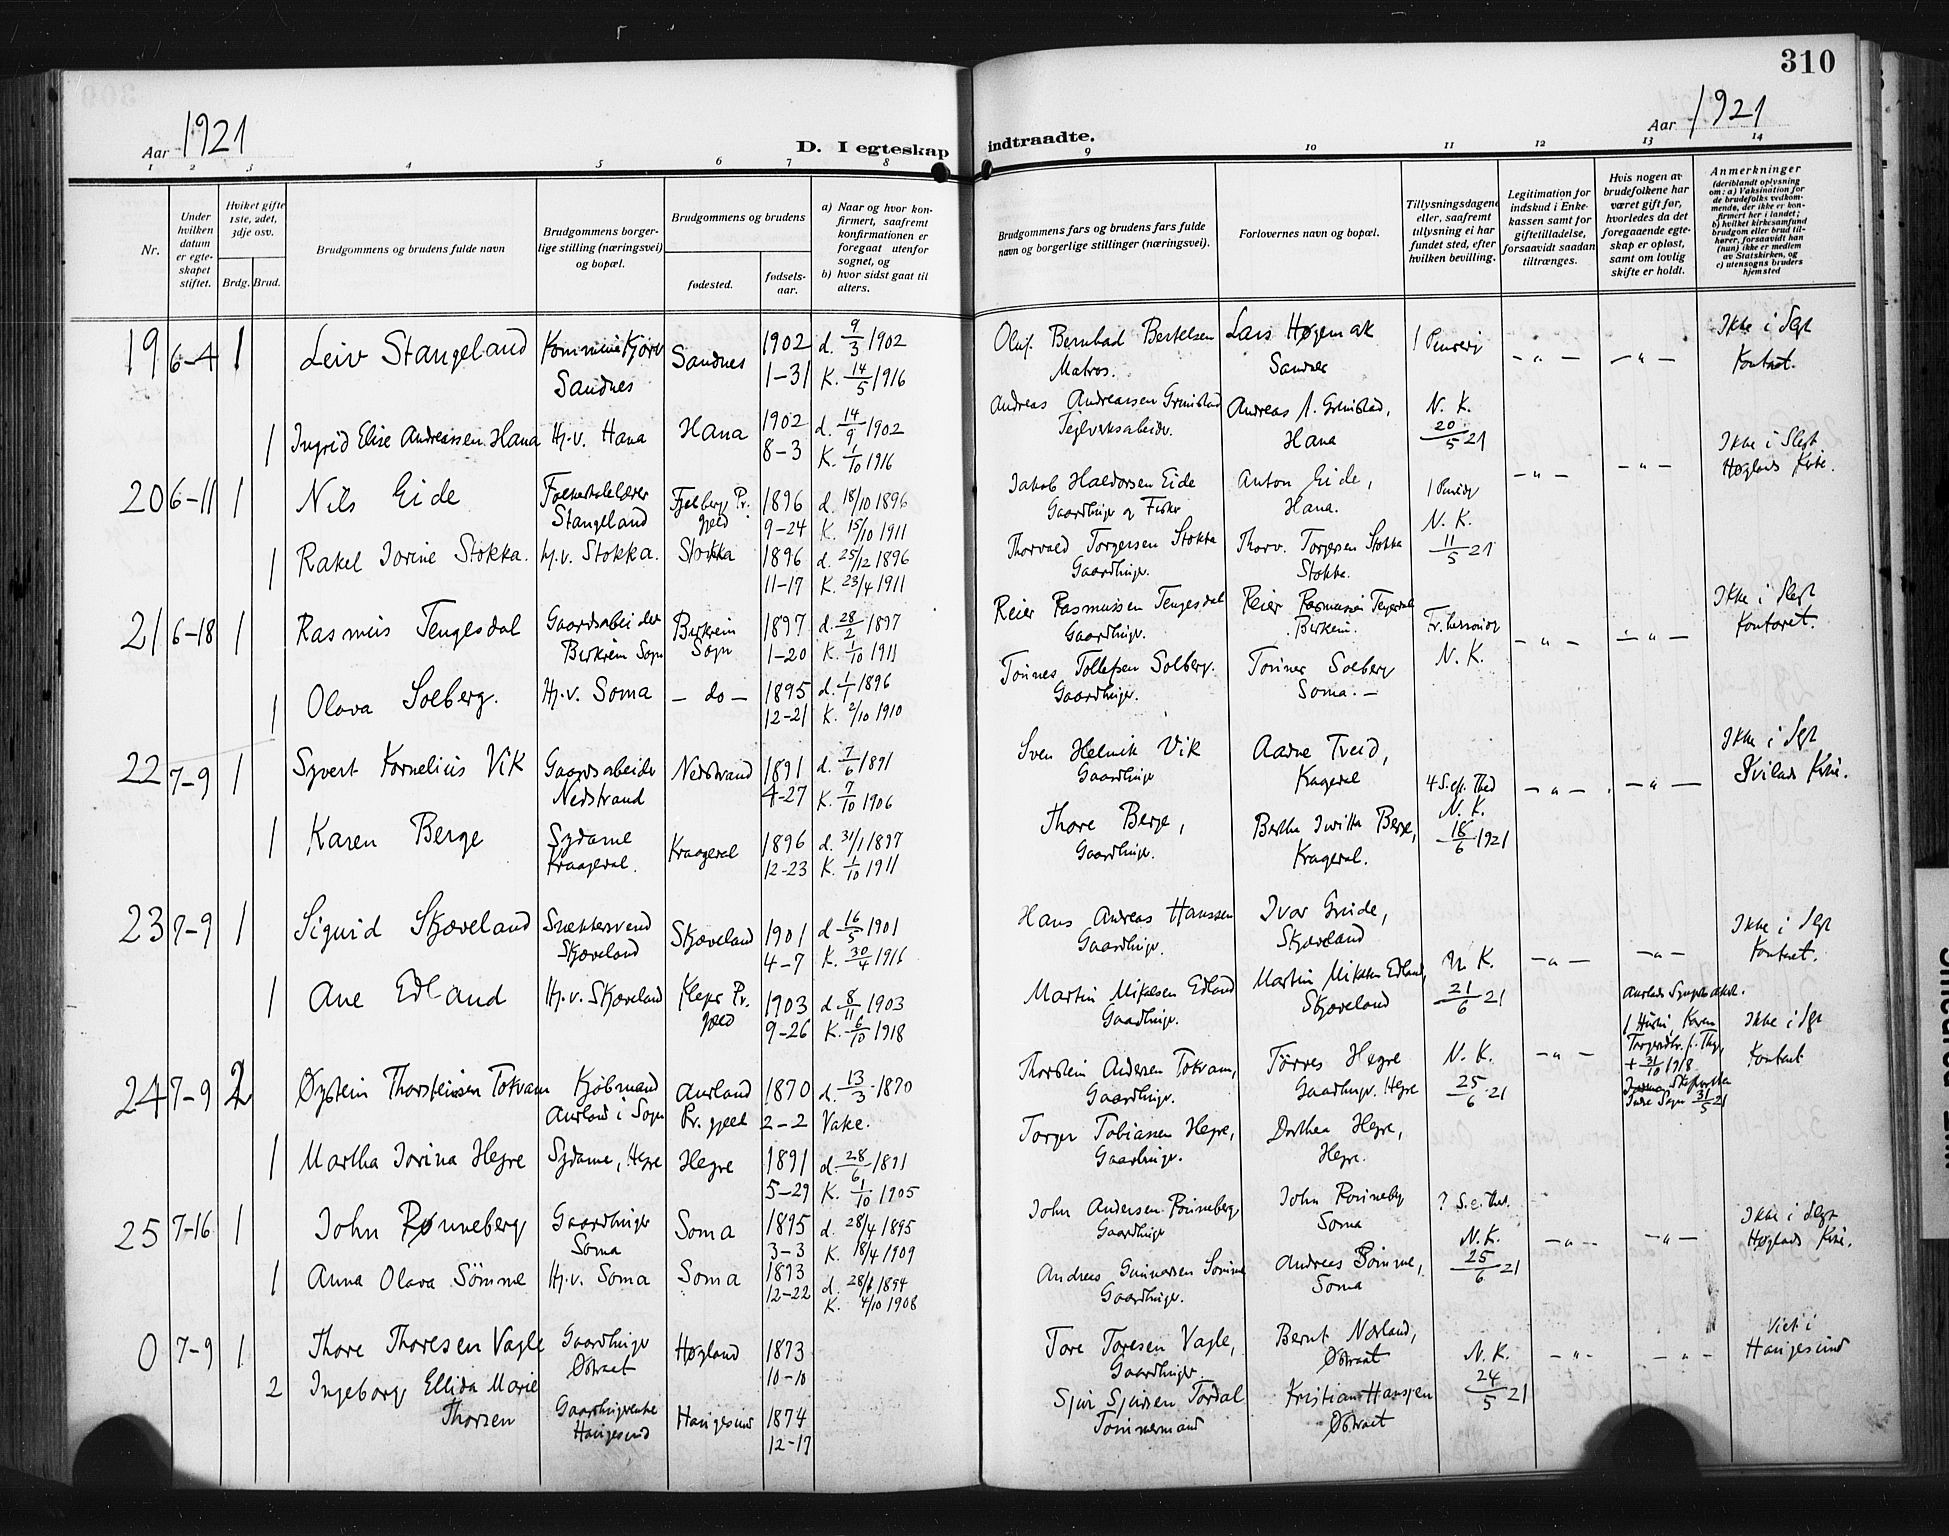 310
Aar 1921
D. I egteskap indtraadte.
Aar 1921
1 2 3 4 5 6 7 8 9 10 11 12 13 14
Nr.
Under hvilken datum er egteskapet stiftet.
Hviket gifte 1ste, 2det, 3dje osv.
Brdg. Brud.
Brudgommens og brudens fulde navn
Brudgommens borgerlige stilling (næringsvei) og bopæl.
Brudgommens og brudens
fødested.
fødselsaar.
a) Naar og hvor konfirmert, saafremt konfirmationen er foregaat utenfor sognet, og
b) hvor sidst gaat til alters.
Brudgommens fars og brudens fars fulde navn og borgerlige stillinger (næringsvei).
Forlovernes navn og bopæl.
Tillysningsdagene eller, saafremt tillysning ei har fundet sted, efter hvilken bevilling.
Legitimation for indskud i Enkekassen samt for giftetilladelse, forsaavidt saadan tiltrænges.
Hvis nogen av brudefolkene har været gift før, hvorledes da det foregaaende egteskap er opløst, samt om lovlig skifte er holdt.
Anmerkninger
(deriblandt oplysning om: a) Vaksination for de brudefolks vedkommende, der ikke er konfirmert her i landet; b) hvilket kirkesamfund brudgom eller brud tilhører, forsaavidt han (hun) ikke er medlem av Statskirken, og c) utensogns bruders hjemsted
19 6-4 1 Leiv Stangeland Sandnes Sandnes 1902 1-31 d. 9/3 1902 K. 14/5 1916 Matros. Lars Høgemak Sandnes -"- -"- Ikke i Slegt Kontoret.
1 Ingrid Elise Andreassen Hana Hj.v. Hana Hana 1902 8-3 d. 14/9 1902 K. 1/10 1916 Andreas Andreassen Grimstad Andreas A. Grimstad, Hana N. K. 20/5 21
20 6-11 1 Nils Eide Stangeland 1896 9-24 d. 18/10 1896 K. 15/10 1911 Jakob Haldorsen Eide Gaardbruger og Fisker Anton Eide, Hana. -"- -"- Ikke i Slegt Høglands Kirke.
1 Rakel Jorine Stokka. Hj.v. Stokka. Stokka 1896 11-17 d. 25/12 1896 K. 23/4 1911 Thorvald Torgersen Stokka Gaardbruger. Thorv. Torgersen Stokka Stokka. N. K. 11/5 21
21 6-18 1 Rasmus Tengesdal Gaardsabeider Birkrem Sogn Birkrem Sogn 1897 1-20 d. 28/2 1897 K. 1/10 1911 Reier Rasmussen Tengesdal Gaardbruger. Reier Rasmussen Tengesdal Birkrem. N. K. -"- -"- Ikke i Slegt Kontoret.
1 Olava Solberg. Hj.v. Soma - do - 1895 12-21 d. 1/1 1896 K. 2/10 1910 Tønnes Tollefsen Solberg. Gaardbruger. Tønnes Solberg Soma. -
22 7-9 1 Syvert Kornelius Vik Gaardsabeider Nedstrand Nedstrand 1891 4-27 d. 7/6 1891 K. 7/10 1906 Sven Helmik Vik Gaardbruger Aadne Tveid, Kragerøl -"- -"- Ikke i Slegt
1 Karen Berge Sydame Kraagerøl. Kraagerøl 1896 12-23 d. 31/1 1897 K. 1/10 1911 Thore Berge, Gaardbruger. Berge, Kragerøl. N. K. 18/6 1921
23 7-9 1 Sigurd Skjæveland Snekkersvend Skjæveland Skjæveland 1901 4-7 d. 16/5 1901 K. 30/4 1916 Hans Andreas Hanssen Gaardbruger. Ivar Grude, Skjæveland -"- -"- Ikke i Slegt Kontoret.
1 Ane Edland Hj.v. Skjæveland Klepp Pr. gjeld 1903 9-26 d. 8/11 1903 K. 6/10 1918 Martin Mikalsen Edland Gaardbruger. Martin Mikalsen Edland, Skjæveland N. K. 21/6 21
24 7-9 2 Øystein Thorsteinsen Tokvam Kjøbmand Aurland i Sogn Aurland Pr. gjeld 1870 2-2 d. 13/3 1870 Vake. Thorstein Andersen Tokvam, Gaardbruger. Tørres Hegre Gaardbruger. Hegre N. K. 25/6 21 -"- + 31/10 1918 Indre Sogn 31/5 21 Ikke i Slegt Kontoret
1 Martha Jorina Hegre Sydame, Hegre Hegre 1891 5-29 d. 28/6 1891 K. 1/10 1905 Torger Tobiassen Hegre, Gaardbruger. Dorthea Hegre, Hegre.
25 7-16 1 John Rønneberg Gaardbruger Soma Soma 1895 3-3 d. 28/4 1895 K. 18/4 1909 John Andersen Rønneberg, Gaardbruger John Rønneberg Soma -"- -"- Ikke i Slegt Høglands Kirke.
1 Anna Olava Sömme Hj.v. Soma Soma 1893 12-22 d. 1894 K. 4/10 1908 Andreas Gunnarsen Sömme Gaardbruger. Andreas Sömme, Soma N. K. 25/6 21
0 7-9 1 Thore Thoresen Vagle Gaardbruger Østraat Høgland 1873 10-10 Tore Toresen Vagle, Gaardbruger. Bernt Norland, Østraat N. K. 24/5 21 -"- -"- Viet i Haugesund
2 Ingeborg Ellida Marie Thorsen Haugesund Haugesund 1874 12-17 Sjur Sjursen Tordal Tømmermand Kristian Hanssen Østraat